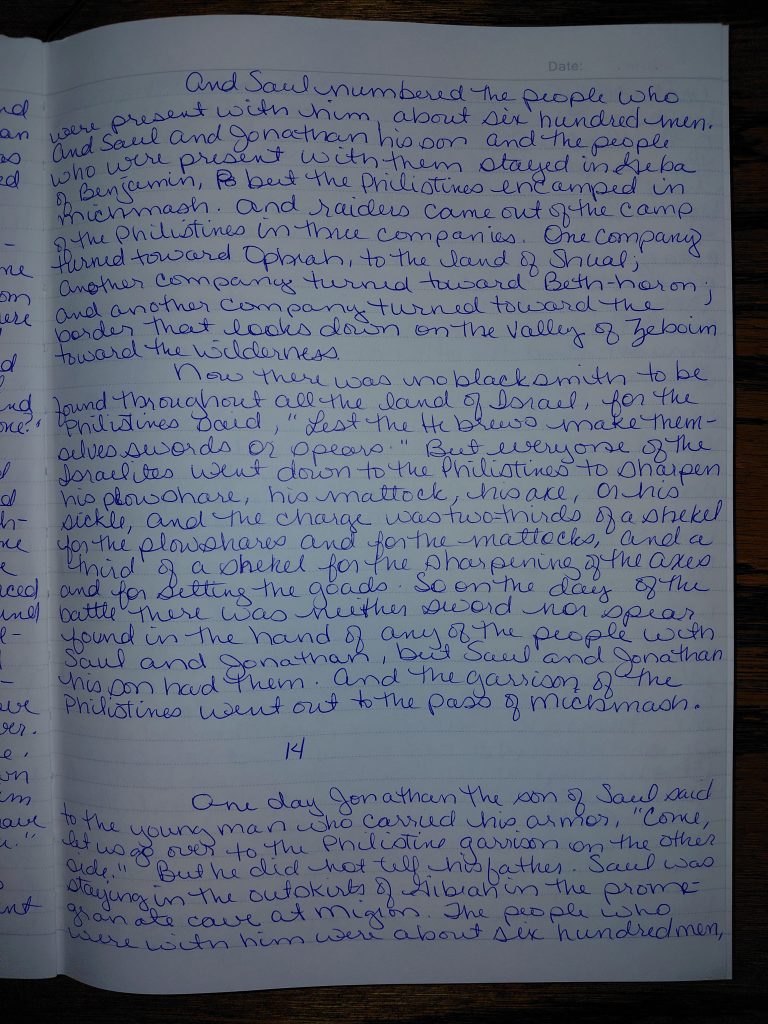 Date:
And Saul numbered the people who
were present with him, about six hundred men.
And Saul and Jonathan his son and the people
who were present with them stayed in Geba
of Benjamin, B but the Philistines encamped in
Michmash. And raiders came out of the camp
of the Philistines in three companies. One company
turned toward Ophrah, to the land of Shual;
another company turned toward Beth-horon;
and another company turned toward the
border that looks down on the Valley of Zeboim
toward the wilderness.
Now there was no blacksmith to be
found throughout all the land of Israel, for the
Philistines said, "Lest the Hebrews make them-
selves swords or spears." But everyone of the
Israelites went down to the Philistines to sharpen
his plowshare, his mattock, his axe, or his
sickle, and the charge was two-thirds of a shekel
for the plowshares and for the mattocks, and a
third of a shekel for the sharpening of the axes
and for setting the goads. So on the day of the
battle there was neither sword nor spear
found in the hand of any of the people with
Saul and Jonathan, but Saul and Jonathan
his son had them. And the garrison of the
Philistines went out to the pass of Michmash.
14
One day Jonathan the son of Saul said
to the young man who carried his armor, "Come,
let us go over to the Philistine garrison on the other
side." But he did not tell his father. Saul was
staying in the outskirts of Gibiah in the prome-
granate cave at Migron. The people who
were with him were about six hundred men,